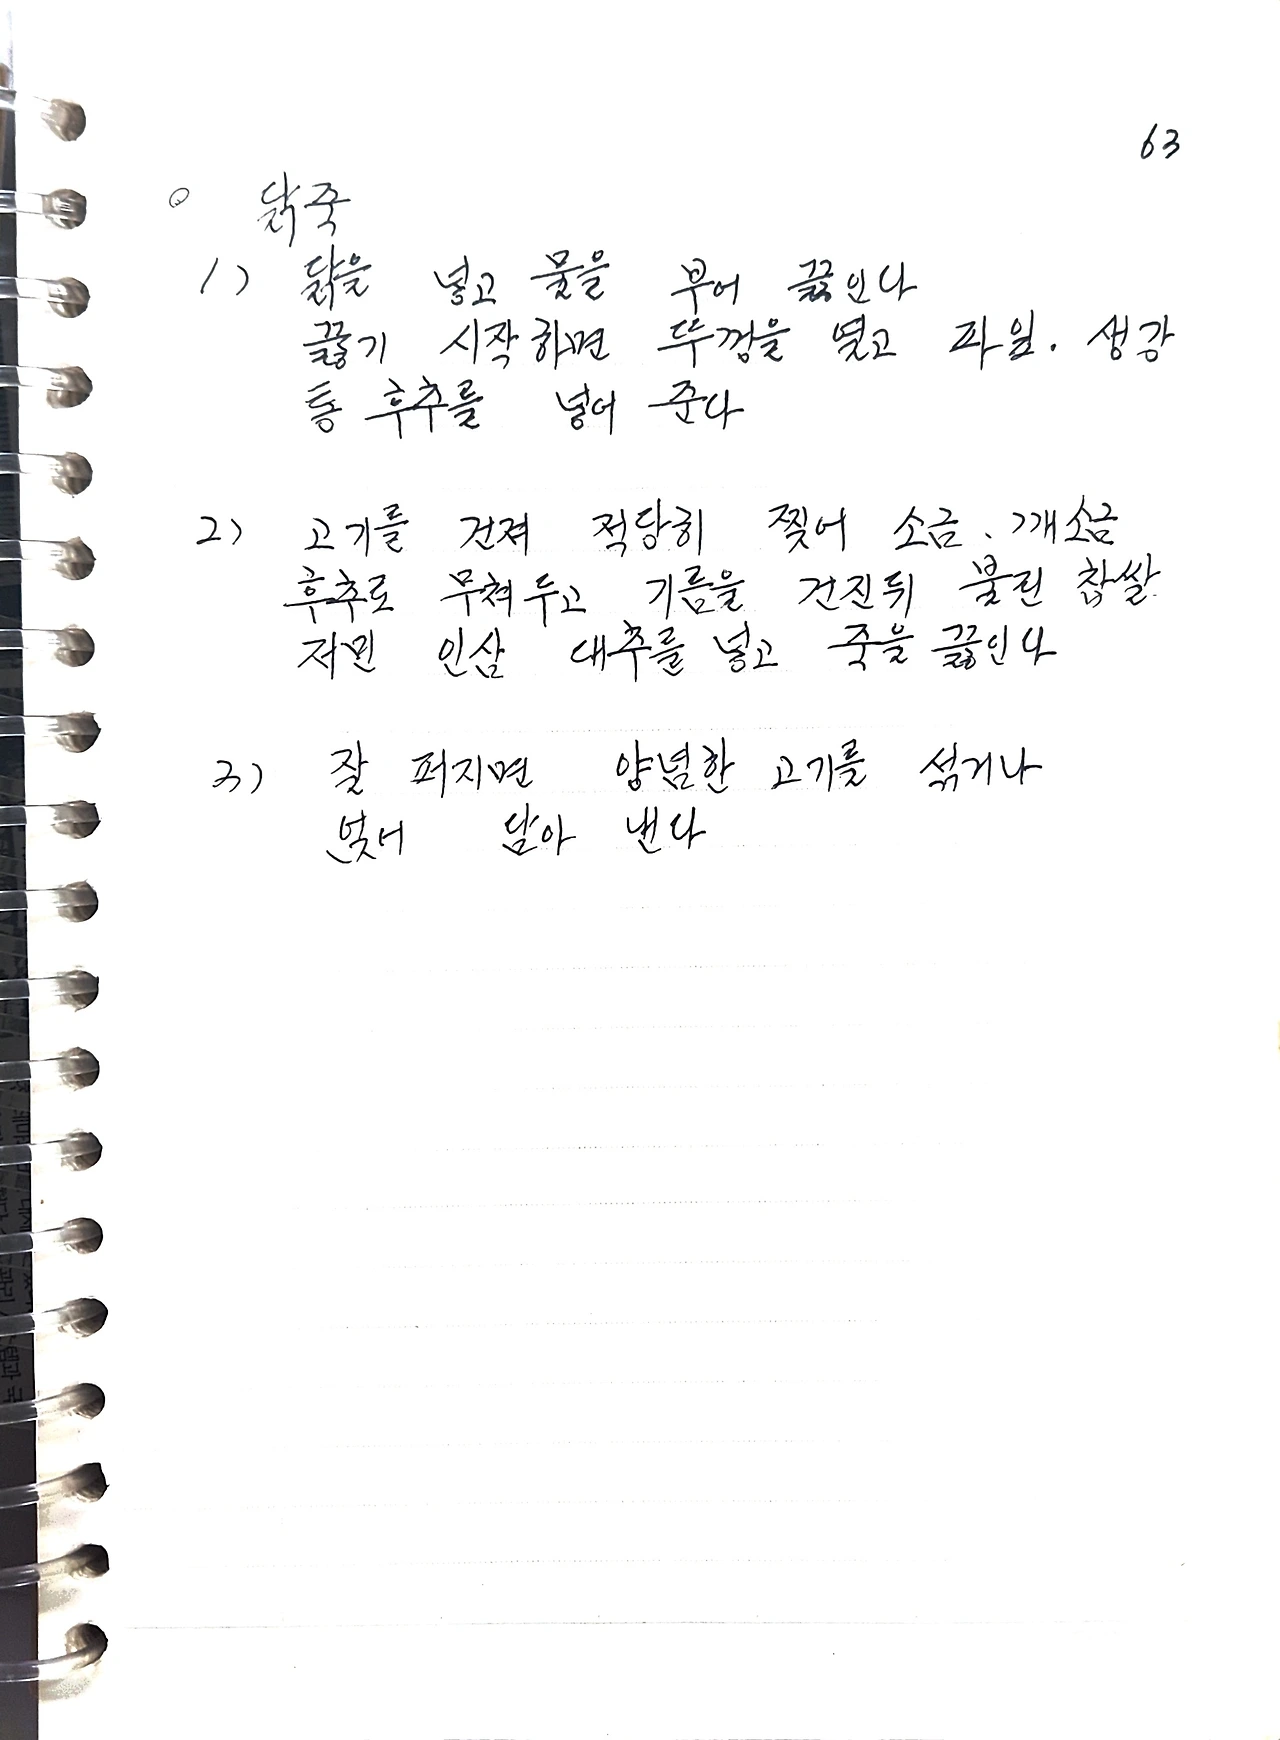 63
닭죽
1) 닭을 넣고 물을 부어 끓인다
끓기 시작하면 뚜껑을 열고 파잎. 생강
통 후추를 넣어 준다
2) 고기를 건져 적당히 찢어 소금. 깨소금
후추로 무쳐두고 기름을 건진뒤 불린 찹쌀.
저민 인삼 대추를 넣고 죽을 끓인다
3) 잘 퍼지면 양념한 고기를 섞거나
얹어 담아 낸다